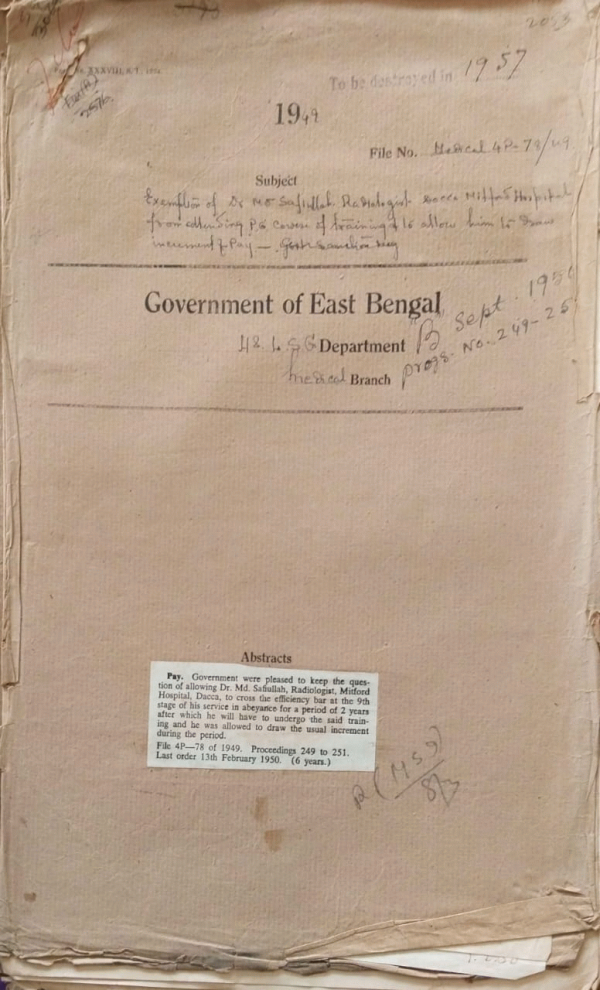 To be destroyed in 1957
1949
File No. Medical 4P-78/49
Subject
Exemption of Dr Md Safiullah Radiologist Dacca Mitford Hospital
from attending P.G course of training & to allow him to draw
increment of Pay — Govt sanction
Government of East Bengal
Department
"B" Sept. 195
Medical Branch
Progs. No. 249-25
Abstracts
Pay. Government were pleased to keep the ques-
tion of allowing Dr. Md. Safiullah, Radiologist, Mitford
Hospital, Dacca, to cross the efficiency bar at the 9th
stage of his service in abeyance for a period of 2 years
after which he will have to undergo the said train-
ing and he was allowed to draw the usual increment
during the period.
File 4P—78 of 1949. Proceedings 249 to 251.
Last order 13th February 1950. (6 years.)